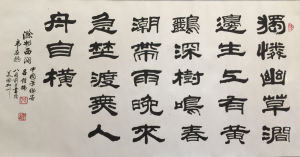 獨憐幽草澗
邊生上有黃
鸝深樹鳴春
潮帶雨晚來
急埜渡無人
舟自橫
滁州西澗